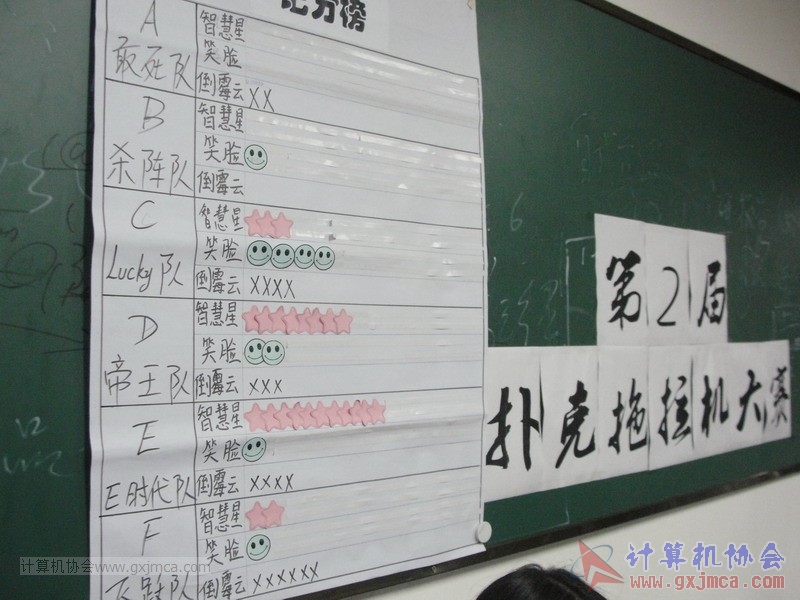 记分榜
A
敢死队
智慧星
笑脸
倒霉云 XX
B
杀阵队
智慧星
笑脸
倒霉云
C
Lucky队
智慧星
笑脸
倒霉云 XXXX
D
帝王队
智慧星
笑脸
倒霉云 XXX
E
E时代队
智慧星
笑脸
倒霉云 XXXX
F
智慧星
笑脸
倒霉云 XXXXXX
第2届
扑克拖拉机大赛
计算机协会www.gxjmca.com
计算机协会
www.gxjmca.com